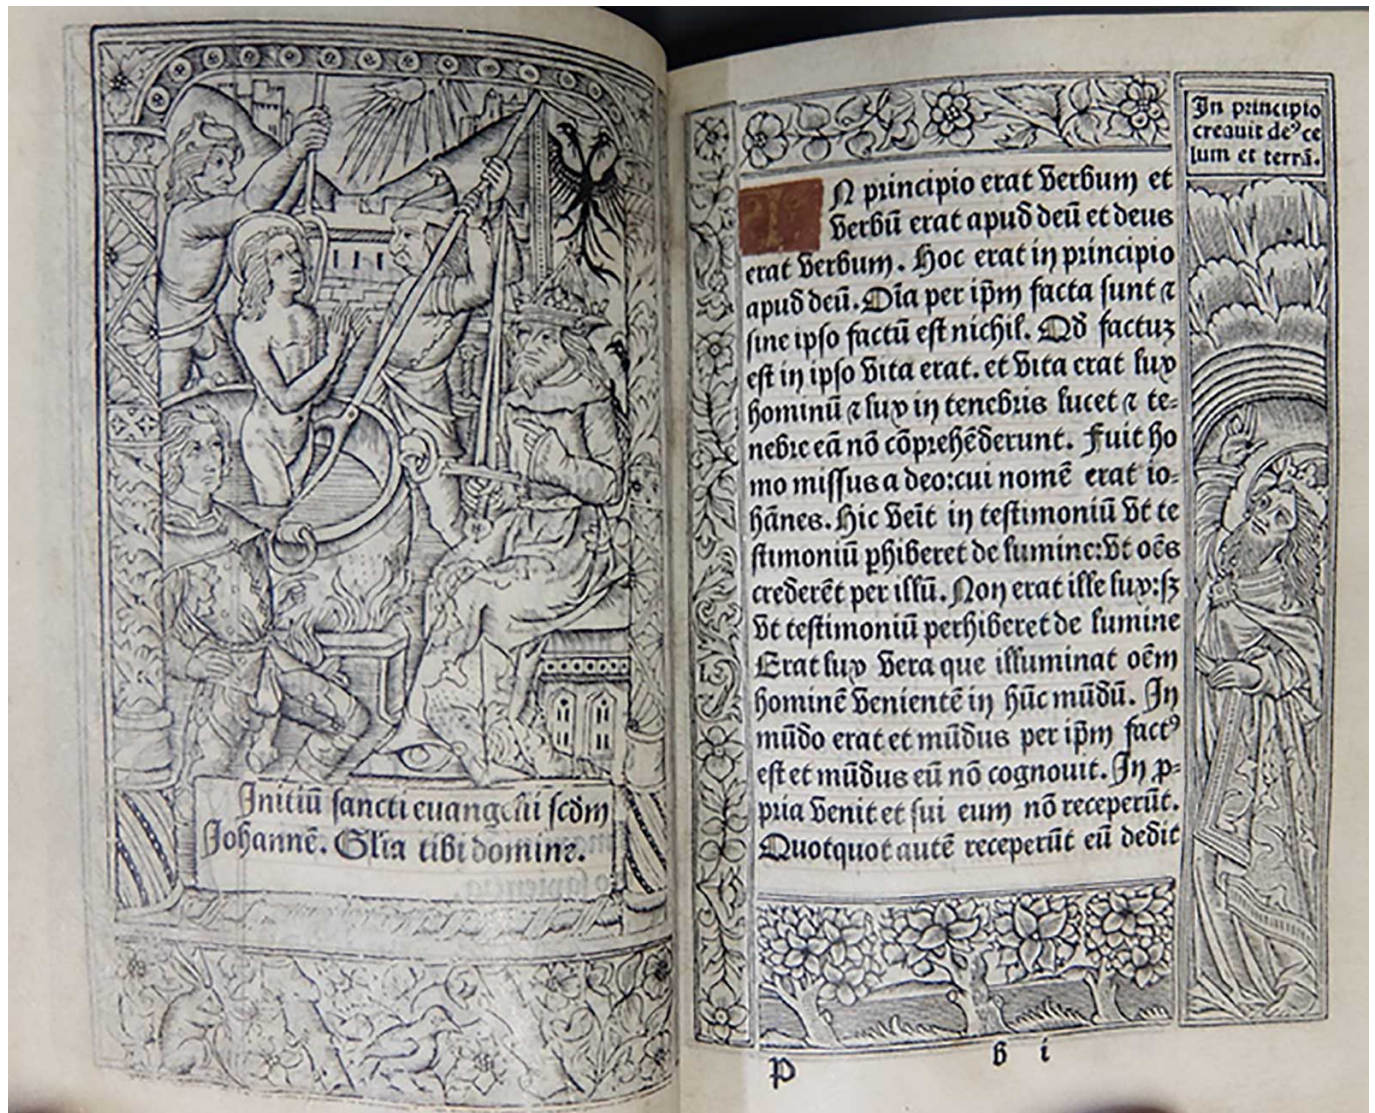 Initiū sancti euangelii scḋm
Johannē. Glīa tibi domine.
IN principio erat verbum et
verbū erat apud deū et deus
erat verbum. Hoc erat in principio
apud deū. Oīa per ip̄m facta sunt ⁊
sine ipso factū est nichil. Qḋ factuꝫ
est in ipso vita erat. et vita erat lux
hominū ⁊ lux in tenebris lucet ⁊ te-
nebre eā nō cōprehēderunt. Fuit ho
mo missus a deo: cui nomē erat io-
hānes. Hic veīt in testimoniū vt te
stimoniū ꝑhiberet de lumine: vt oēs
crederēt per illū. Non erat ille lux: sꝫ
vt testimoniū perhiberet de lumine
Erat lux vera que illuminat oēm
hominē venientē in hūc mūdū. In
mūdo erat et mūdus per ip̄m factꝰ
est et mūdus eū nō cognouit. In ꝓ-
pria venit et sui eum nō receperūt.
Quotquot autē receperūt eū dedit
In principio
creauit deꝰ ce
lum et terrā.
P b i